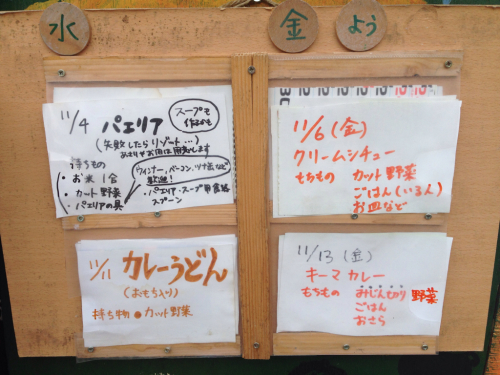 水
金
よう
11/4 パエリア
スープも
作るかも
(失敗したらリゾット…)
あさりやお肉は用意します
持ちもの
・お米1合
・カット野菜
・パエリアの具
ウインナー、ベーコン、ツナ缶など
歓迎!
・パエリア・スープ用食器
スプーン
11/6 (金)
クリームシチュー
もちもの カット野菜
ごはん(いる人)
お皿など
11/11 カレーうどん
(おもち入り)
持ち物 ● カット野菜
11/13 (金)
キーマカレー
もちもの みじん切り野菜
ごはん
おさら